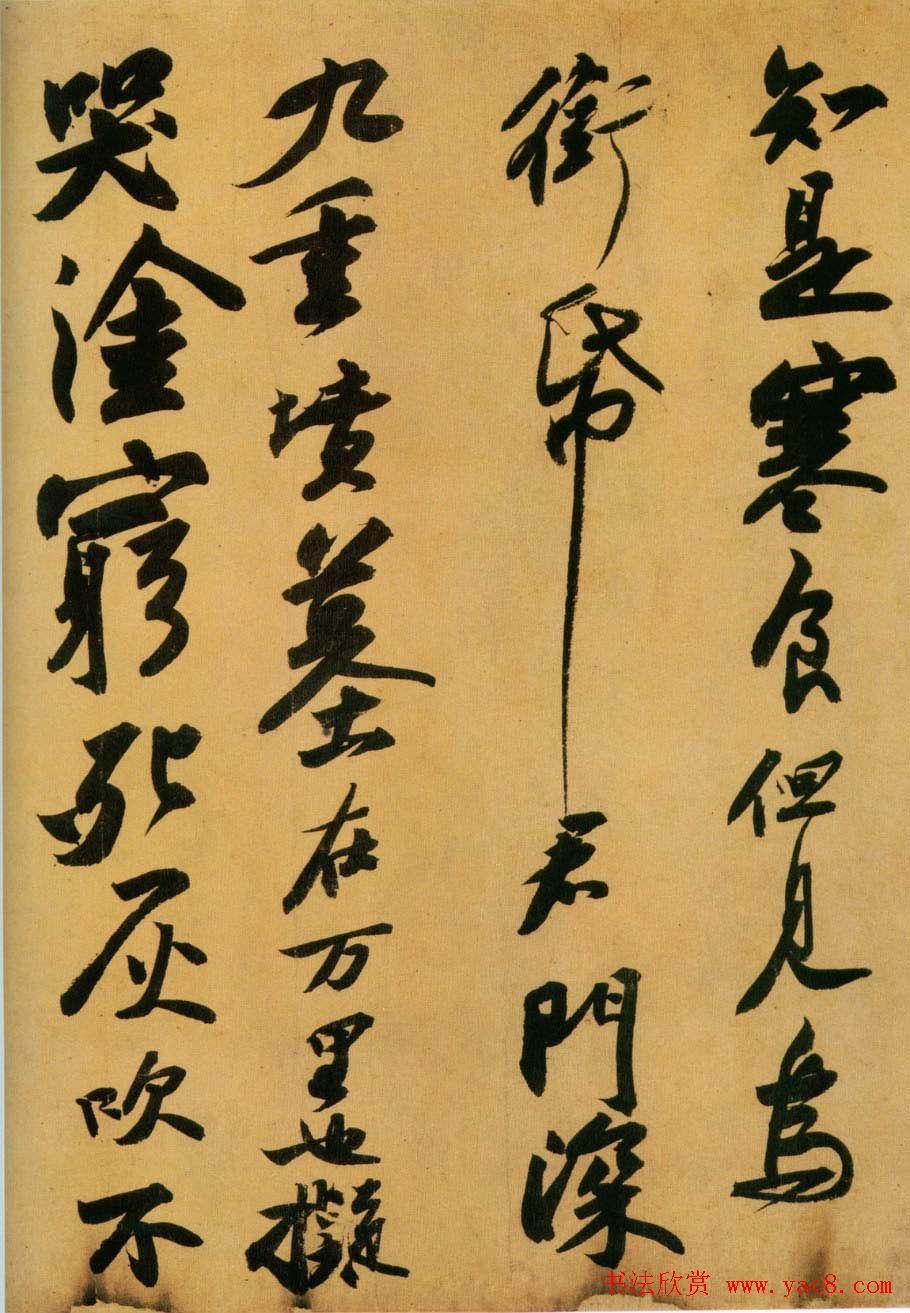 知是寒食但見烏
銜帋君門深
九重墳墓在万里也擬
哭塗窮死灰吹不
书法欣赏 www.yac8.com